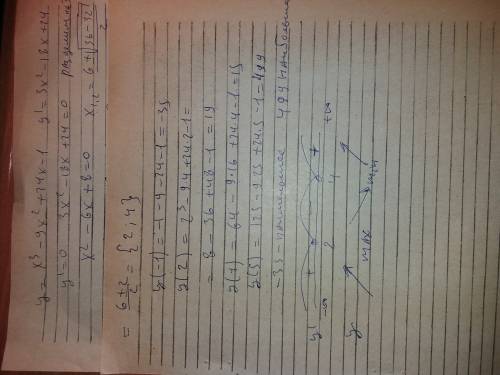 y = x³ - 9x² + 24x - 1 y' = 3x² - 18x + 24
y' = 0 3x² - 18x + 24 = 0
x² - 6x + 8 = 0 x₁,₂ = 6 ± √36 - 32 / 2
= 6 ± 2 / 2 = {2, 4}
y(-1) = -1 - 9 - 24 - 1 = 35
y(2) = 2³ - 9·4 + 24·2 - 1 =
= 8 - 36 + 48 - 1 = 19
y(4) = 64 - 9·16 + 24·4 - 1 = 15
y(5) = 125 - 9·25 + 24·5 - 1 = 499
-35 - наименьшее 499 наибольшее
y' + - +
-∞ 2 4 +∞
y max min